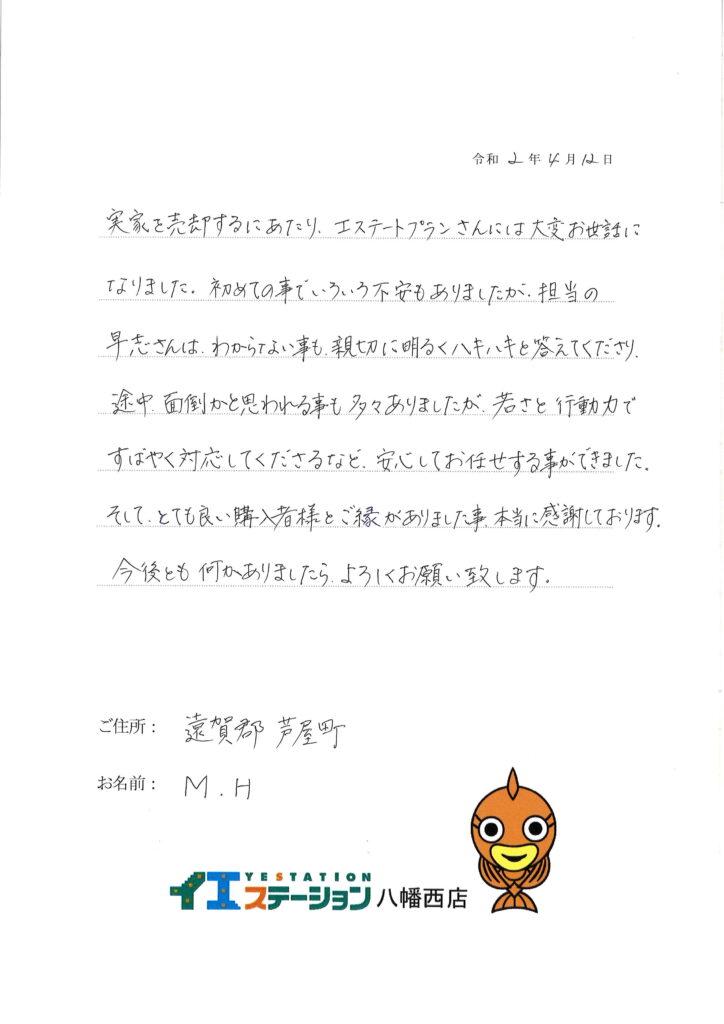 令和 2 年 4 月 12 日
実家を売却するにあたり、エステートプランさんには大変お世話に
なりました。初めての事でいろいろ不安もありましたが、担当の
早志さんは、わからない事も、親切に明るくハキハキと答えてくださり、
途中、面倒かと思われる事も多々ありましたが、若さと行動力で
すばやく対応してくださるなど、安心してお任せする事ができました。
そして、とても良い購入者様とご縁がありました事、本当に感謝しております。
今後とも何かありましたら、よろしくお願い致します。
ご住所： 遠賀郡 芦屋町
お名前： M.H
YESTATION
イエステーション 八幡西店